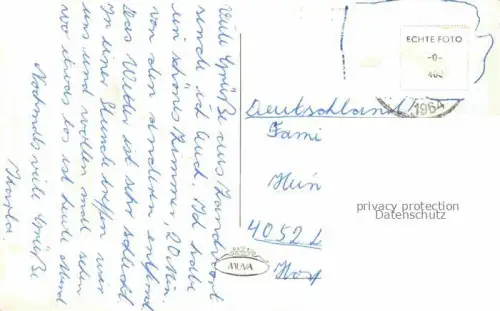 Viele Grüße aus Zandvoort
sende ich Euch. Ich habe
ein schönes Zimmer, 20 Min.
von den anderen entfernt
Das Wetter ist sehr schlecht.
In einer Stunde treffen wir
uns und wollen mal sehn
wo etwas los ist heute Abend
Nochmals viele Grüße
ECHTE FOTO
-0-
400
1964
Deutschland
Fami
Hein
4052 L
privacy protection
Datenschutz
MUVA